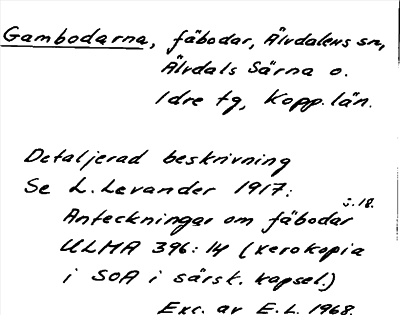 Gambodarna, fäbodar, Älvdalens sn,
Älvdals Särna o.
Idre tg, Kopp. län.
Detaljerad beskrivning
Se L. Levander 1917:
Anteckningar om fäbodar s. 18.
ULMA 396:14 (xerokopia
i SOA i särsk. kapsel.)
Exc. av E.L. 1968.